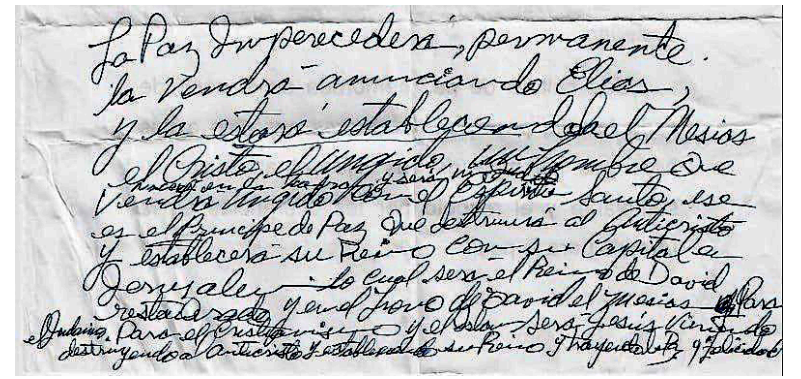 La Paz Imperecedera, permanente.
la Vendrá anunciando Elías,
y la estará estableciendola el Mesias
el Cristo, el Ungido, un hombre que
nacerá en la tierra y será
Vendrá Ungido con el Espiritu Santo, ese
es el Principe de Paz que destruirá al Anticristo
y establecerá su Reino con su Capital en
Jerusalen lo cual será el Reino de David
restaurado y en el Trono de David el Mesias Para
el Judaismo. Para el Cristianismo y el Islam será Jesús Viniendo
destruyendo al anticristo y estableciendo su Reino y Trayendo la Paz y felicidad